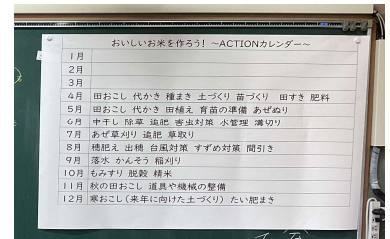 おいしいお米を作ろう! ～ACTIONカレンダー～
1月
2月
3月
4月 田おこし 代かき 種まき 土づくり 苗づくり 田すき 肥料
5月 田おこし 代かき 田植え 育苗の準備 あぜぬり
6月 中干し 除草 追肥 害虫対策 水管理 溝切り
7月 あぜ草刈り 追肥 草取り
8月 穂肥え 出穂 台風対策 すずめ対策 間引き
9月 落水 かんそう 稲刈り
10月 もみすり 脱穀 精米
11月 秋の田おこし 道具や機械の整備
12月 寒おこし(来年に向けた土づくり) たい肥まき